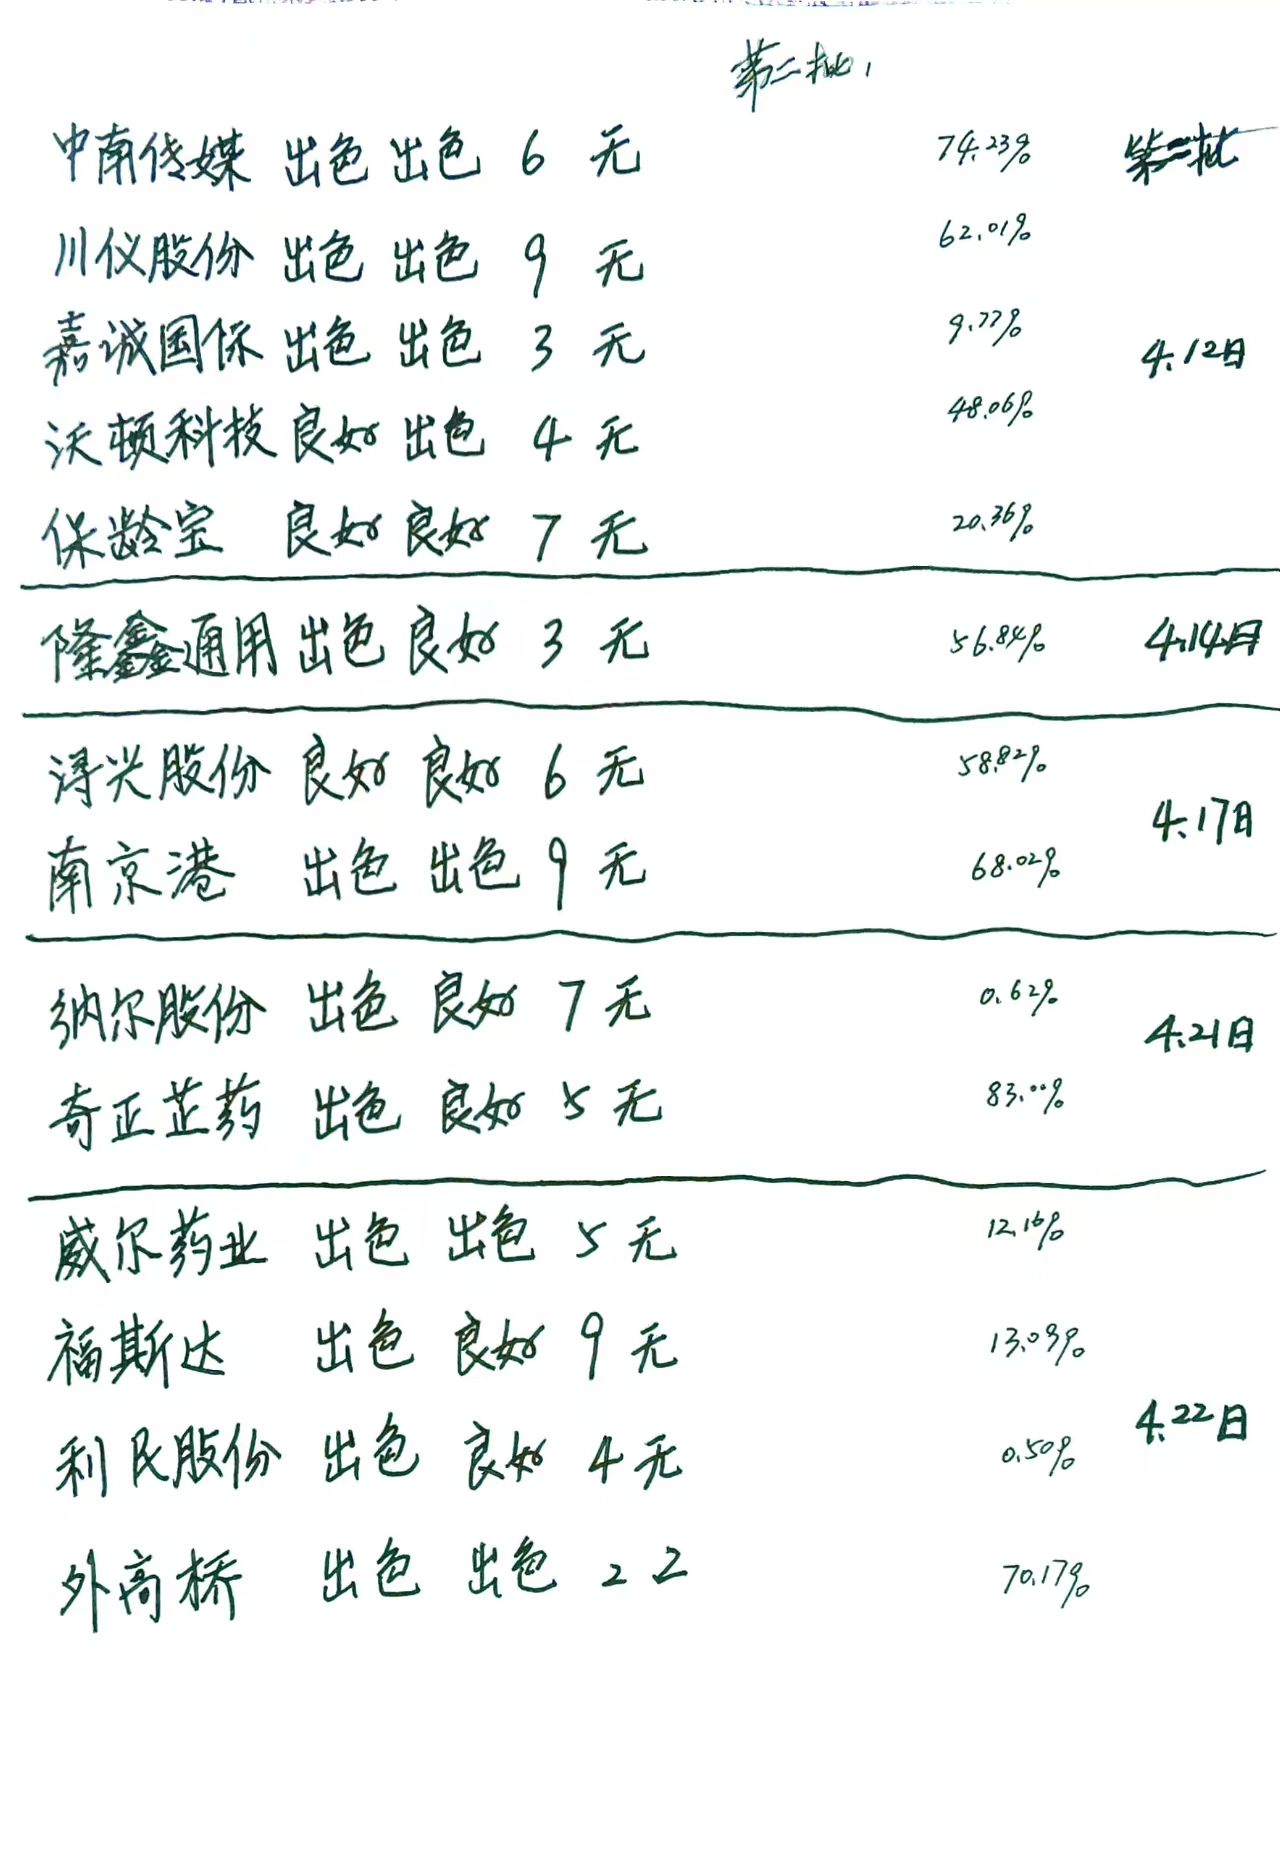 第二批,
中南传媒 出色 出色 6 无 74.23% 第二批
川仪股份 出色 出色 9 无 62.01%
嘉诚国际 出色 出色 3 无 9.77%
4.12日
沃顿科技 良好 出色 4 无 48.06%
保龄宝 良好 良好 7 无 20.36%
隆鑫通用 出色 良好 3 无 56.84% 4.14日
浔兴股份 良好 良好 6 无 58.82%
4.17日
南京港 出色 出色 9 无 68.02%
纳尔股份 出色 良好 7 无 0.62%
4.21日
奇正芷药 出色 良好 5 无 83.00%
威尔药业 出色 出色 5 无 12.16%
福斯达 出色 良好 9 无 13.09%
4.22日
利民股份 出色 良好 4 无 0.50%
外高桥 出色 出色 2 2 70.17%